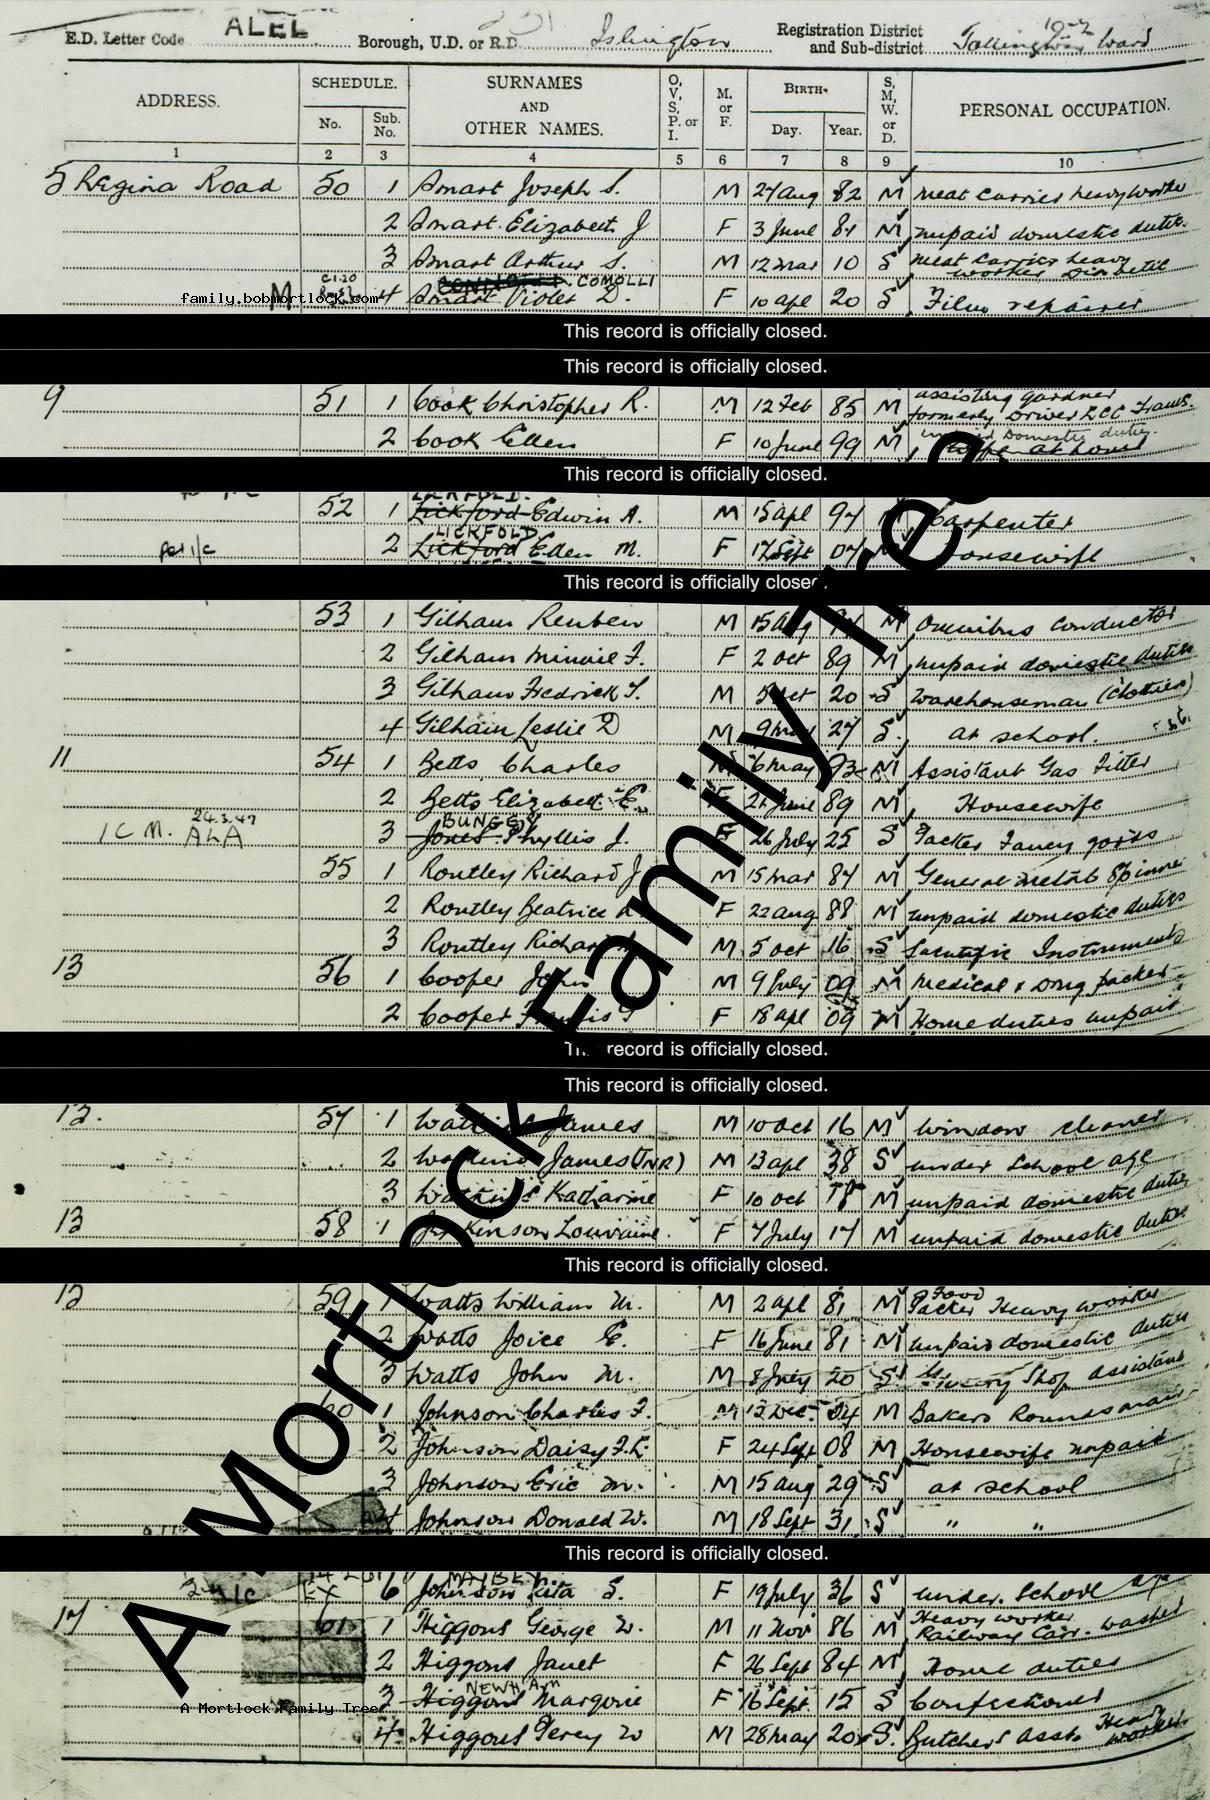 E.D. Letter Code ALEL Borough, U.D. or R.D. Islington Registration District and Sub-district Tollington Ward
ADDRESS. SCHEDULE. SURNAMES AND OTHER NAMES. O, V, S, P. or I. M. or F. BIRTH. S, M, W. or D. PERSONAL OCCUPATION.
No. Sub. No. Day. Year.
1 2 3 4 5 6 7 8 9 10
5 Regina Road 50 1 Smart Joseph S. M 27 Aug 82 M Meat Carrier heavy worker
2 Smart Elizabeth J F 3 June 81 M unpaid domestic duties
3 Smart Arthur S. M 12 Mar 10 S Meat Carrier heavy worker Diabetic
COMOLLI
family.bobmortlock.com
M 4 Smart Violet D. F 10 Apl 20 S Film repairer
This record is officially closed.
This record is officially closed.
9 51 1 Cook Christopher R. M 12 Feb 85 M assisting gardner formerly Driver LCC Trams
2 Cook Ellen F 10 June 99 M unpaid Domestic duties
This record is officially closed.
LICKFOLD.
52 1 Lickford Edwin A. M 15 Apl 94 Carpenter
LICKFOLD
2 Lickford Ellen M. F 17 Sept 07 Housewife
This record is officially closed.
53 1 Gilham Reuben M 15 Aug M Omnibus Conductor
2 Gilham Minnie F. F 2 Oct 89 M unpaid domestic duties
3 Gilham Fredrick T. M 5 Oct 20 S Warehouseman (Clothier)
4 Gilham Leslie D M 9 May 27 S at school.
11 54 1 Betts Charles M 6 May M Assistant Gas Fitter
2 Betts Elizabeth E. F 21 June 89 M Housewife
24.3.47 BUNGEY
ICM. ALA 3 Jones Phyllis J. F 26 July 25 S Packer Fancy goods
55 1 Routley Richard J M 15 Mar 84 M General Metal Spinner
2 Routley Beatrice F 22 Aug 88 M unpaid domestic duties
3 Routley Richard M 5 Oct 16 S Scientific Instruments
13 56 1 Cooper John M 9 July 09 M Medical & Drug packer
2 Cooper F 18 Apl 09 M Home duties unpaid
This record is officially closed.
This record is officially closed.
13. 57 1 Watkins James M 10 Oct 16 M Window cleaner
2 Watkins James (JNR) M 13 Apl 38 S under School age
3 Watkins Katharine F 10 Oct 18 M unpaid domestic duties
13 58 1 Louvaine. F 7 July 17 M unpaid domestic duties
This record is officially closed.
13 59 1 Watts William M. M 2 Apl 81 M Food Packer Heavy Worker
2 Watts Joice E. F 16 June 81 M unpaid domestic duties
3 Watts John M. M 8 July 20 S Shop Assistant
60 1 Johnson Charles F. M 13 Dec. 04 M Bakers Roundsman
2 Johnson Daisy F.E. F 24 Sept 08 M Housewife unpaid
3 Johnson Eric M. M 15 Aug 29 S at school
4 Johnson Donald W. M 18 Sept 31 S " "
This record is officially closed.
MAYBEY
6 Johnson Rita S. F 19 July 36 S under School age
17 61 1 Higgons George W. M 11 Nov 86 M Heavy worker Railway Carr. washer
2 Higgons Janet F 26 Sept 84 M Home duties
NEWHAM
3 Higgons Margorie F 16 Sept. 15 S Confectioner
4 Higgons Percy W M 28 May 20 S. Butchers Asst. Heavy worker
A Mortlock Family Tree
A Mortlock Family Tree